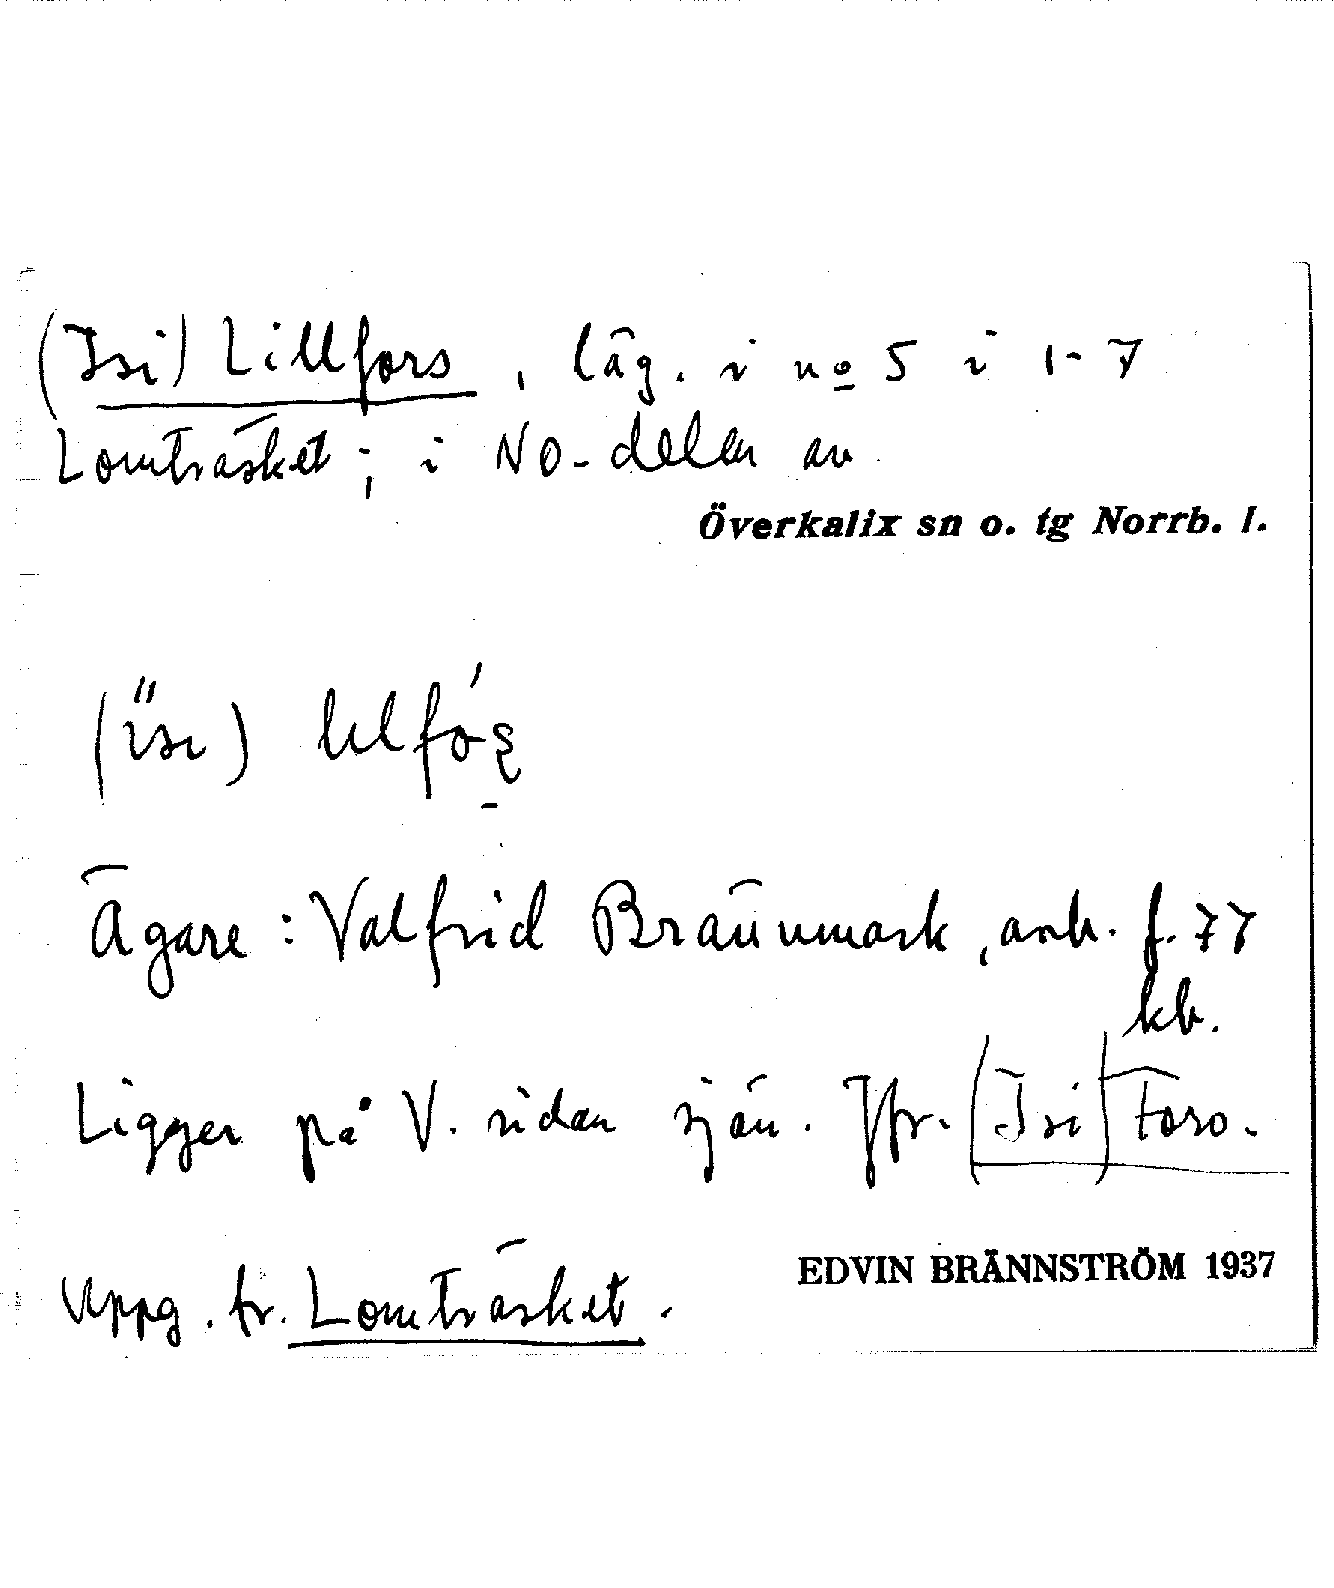 (Isi) Lillfors, läg. i no 5 i 1-7
Lomträsket; i NO-delen av
Överkalix sn o. tg Norrb. l.
Ägare: Valfrid Brännmark, arb. f. 77
kb.
Ligger på V. sidan sjön. Jfr. (Isi) Fors.
Uppg. fr. Lomträsket.
EDVIN BRÄNNSTRÖM 1937